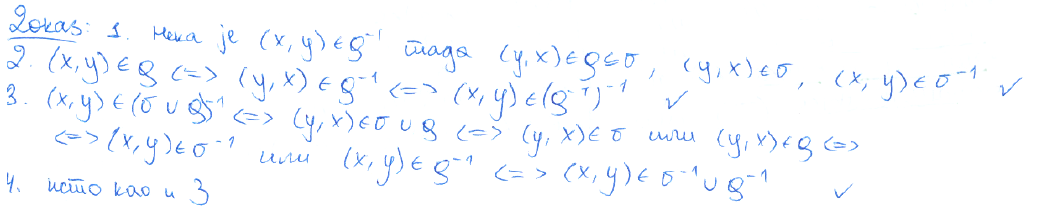 Доказ: 1. Нека је (x, y) ∈ ρ⁻¹ тада (y, x) ∈ ρ ⊆ σ, (y, x) ∈ σ, (x, y) ∈ σ⁻¹. ✓
2. (x, y) ∈ ρ <=> (y, x) ∈ ρ⁻¹ <=> (x, y) ∈ (ρ⁻¹)⁻¹ ✓
3. (x, y) ∈ (σ ∪ ρ)⁻¹ <=> (y, x) ∈ σ ∪ ρ <=> (y, x) ∈ σ или (y, x) ∈ ρ <=>
<=> (x, y) ∈ σ⁻¹ или (x, y) ∈ ρ⁻¹ <=> (x, y) ∈ σ⁻¹ ∪ ρ⁻¹
4. исто као и 3 ✓